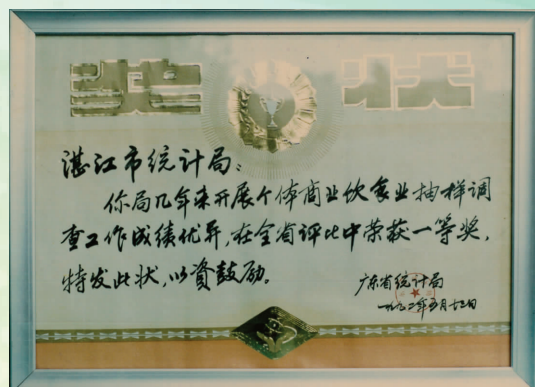 奖状
湛江市统计局：
你局几年来开展个体商业饮食业抽样调
查工作成绩优异，在全省评比中荣获一等奖，
特发此状，以资鼓励。
广东省统计局